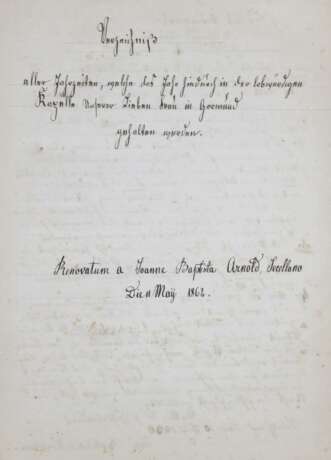 Verzeichniß
aller Jahrzeiten, welche das Jahr hindurch in der lobwürdigen
Kapelle Unserer Lieben Frau in Gormund
gehalten werden.
Renovatum a Joanne Baptista Arnold, Sacellano
Die 11 Maÿ 1862.